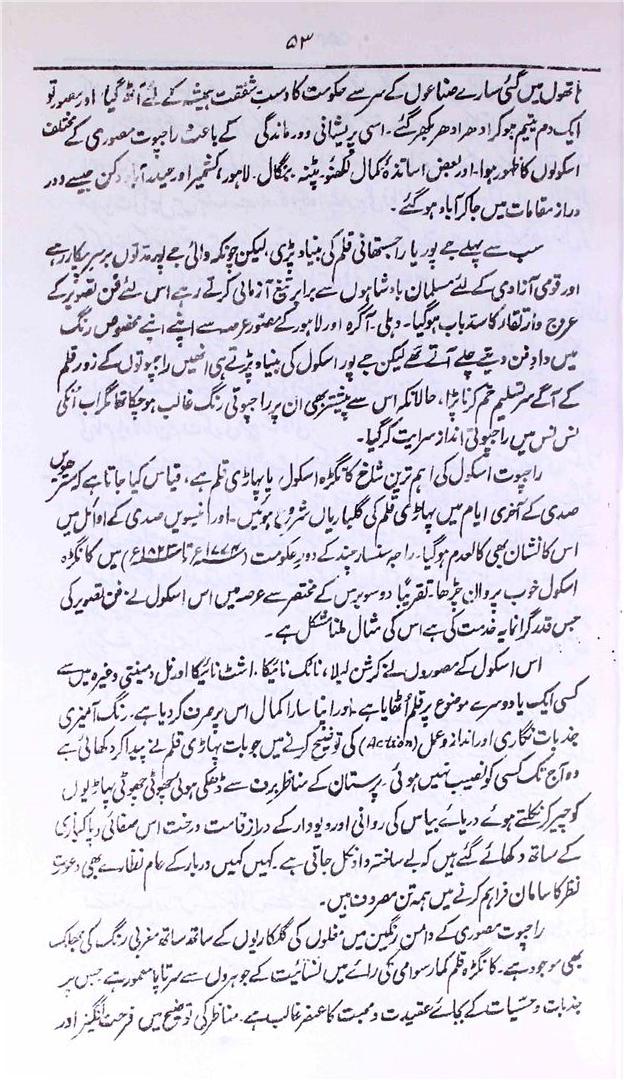 ۵۳
ہاتھوں میں گئی سارے صناعوں کے سر سے حکومت کا دستِ شفقت ہمیشہ کے لئے اُٹھ گیا اور مصور تو
ایک دم یتیم ہو کر ادھر ادھر بکھر گئے۔ اسی پریشانی و درماندگی کے باعث راجپوت مصوری کے مختلف
اسکولوں کا ظہور ہوا۔ اور بعض اساتذۂ کمال لکھنؤ۔ پٹنہ۔ بنگال۔ لاہور، کشمیر اور حیدرآباد دکن جیسے دور
دراز مقامات میں جا کر آباد ہو گئے۔
سب سے پہلے جے پور یا راجستھانی قلم کی بنیاد پڑی، لیکن چونکہ والئ جے پور مدتوں بر سر پیکار رہے
اور قومی آزادی کے لئے مسلمان بادشاہوں سے برابر تیغ آزمائی کرتے رہے اس لئے فن تصویر کے
عروج و ارتقاء کا سدباب ہو گیا۔ دہلی۔ آگرہ اور لاہور کے مصور عرصہ سے اپنے اپنے مخصوص رنگ
میں داد فن دیتے چلے آتے تھے لیکن جے پور اسکول کی بنیاد پڑتے ہی انھیں راجپوتوں کے زور قلم
کے آگے سر تسلیم خم کرنا پڑا، حالانکہ اس سے پیشتر بھی ان پر راجپوتی رنگ غالب ہو چکا تھا مگر اب انکی
نس نس میں راجپوتی انداز سرایت کر گیا۔
راجپوت اسکول کی اہم ترین شاخ کانگڑہ اسکول یا پہاڑی قلم ہے، قیاس کیا جاتا ہے کہ سترھویں
صدی کے آخری ایام میں پہاڑی قلم کی گلکاریاں شروع ہوئیں۔ اور انیسویں صدی کے اوائل میں
اس کا نشان بھی کالعدم ہو گیا۔ راجہ سنسار چند کے دورِ حکومت (۱۷۷۴ء تا ۱۸۲۳ء) میں کانگڑہ
اسکول خوب پروان چڑھا۔ تقریباً دو سو برس کے مختصر سے عرصہ میں اس اسکول نے فن تصویر کی
جس قدر گرانمایہ خدمت کی ہے اس کی مثال ملنا مشکل ہے۔
اس اسکول کے مصوروں نے کرشن لیلا، نائک نائیکا۔ اشٹ نائیکا اور نل دمینتی وغیرہ میں سے
کسی ایک یا دوسرے موضوع پر قلم اُٹھایا ہے۔ اور اپنا سارا کمال اس پر صرف کر دیا ہے۔ رنگ آمیزی
جذبات نگاری اور انداز و عمل (Action) کی توضیح کرنے میں جو بات پہاڑی قلم نے پیدا کر دکھائی ہے
وہ آج تک کسی کو نصیب نہیں ہوئی۔ پرستان کے مناظر برف سے ڈھکی ہوئی چھوٹی چھوٹی پہاڑیوں
کو چیر کر نکلتے ہوئے دریائے بیاس کی روانی اور دیودار کے دراز قامت درخت اس صفائی و پاکبازی
کے ساتھ دکھائے گئے ہیں کہ بے ساختہ واہ نکل جاتی ہے۔ کہیں کہیں دربار کے عام نظارے بھی دعوت
نظر کا سامان فراہم کرنے میں ہمہ تن مصروف ہیں۔
راجپوت مصوری کے دامن رنگین میں مغلوں کی گلکاریوں کے ساتھ ساتھ مغربی رنگ کی جھلک
بھی موجود ہے۔ کانگڑہ قلم کمار سوامی کی رائے میں نسائیت کے جوہروں سے سر تا پا معمور ہے۔ جس پر
جذبات و حسّیات کے بجائے عقیدت و محبت کا عنصر غالب ہے۔ مناظر کی توضیح میں فرحت انگیز اور